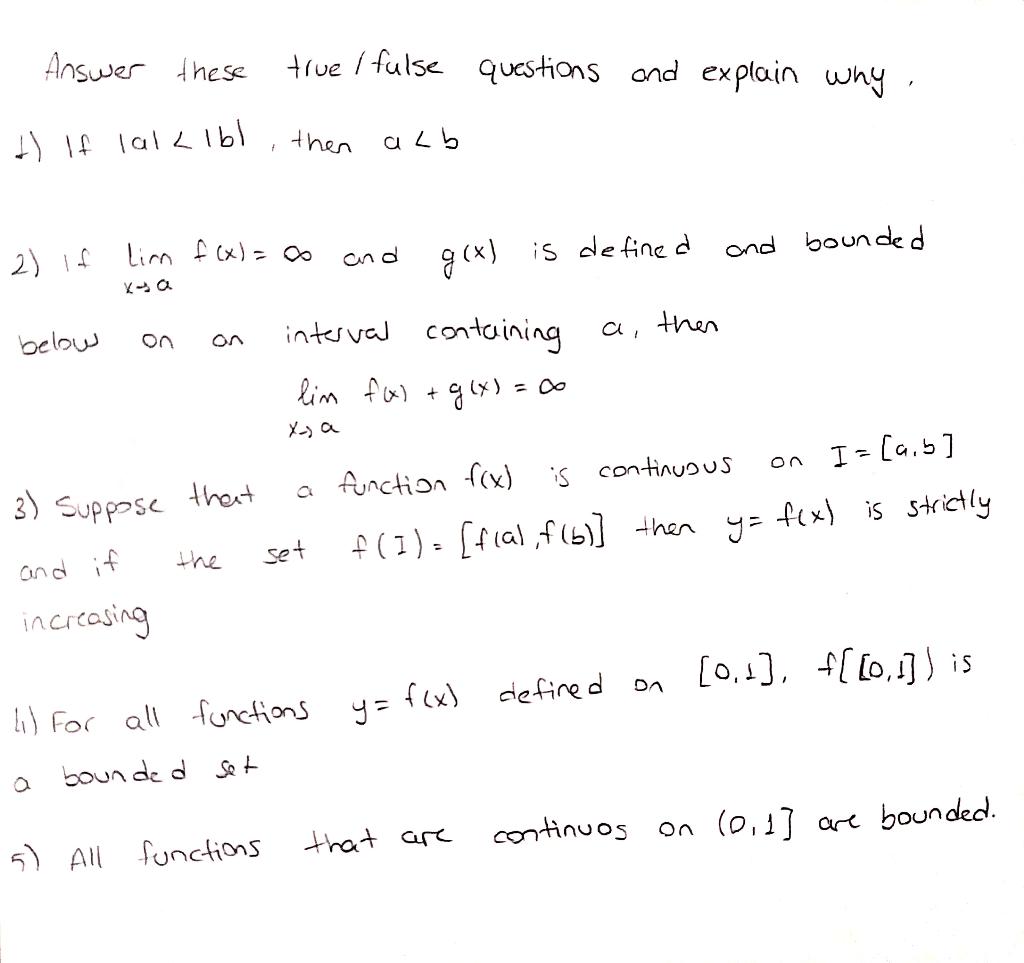 Answer these true/false questions and explain why.
1) If |a| < |b|, then a < b
2) if lim f(x) = ∞ and g(x) is defined and bounded
x→a
below on an interval containing a, then
lim f(x) + g(x) = ∞
x→a
3) Suppose that a function f(x) is continuous on I = [a,b]
and if the set f(I) = [f(a), f(b)] then y = f(x) is strictly
increasing
4) For all functions y = f(x) defined on [0,1], f([0,1]) is
a bounded set
5) All functions that are continuos on (0,1] are bounded.